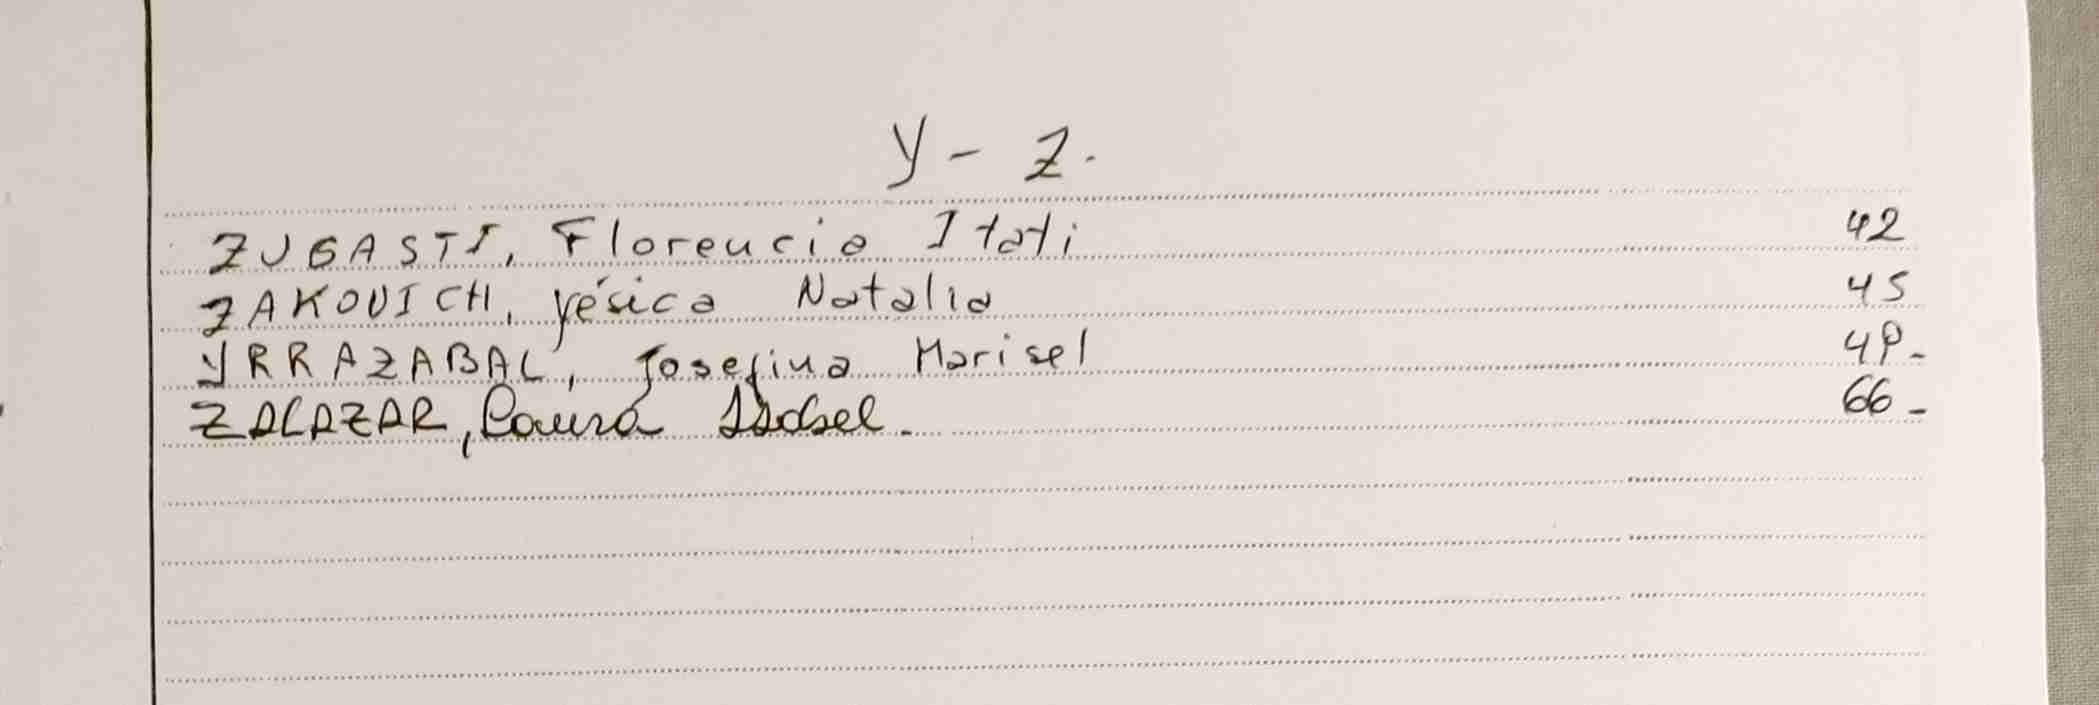 Y - Z.
ZUGASTI, Florencia Itati 42
ZAKOVICH, Yésica Natalia 45
YRRAZABAL, Josefina Marisel 49-
ZALAZAR, Laura Isabel. 66-